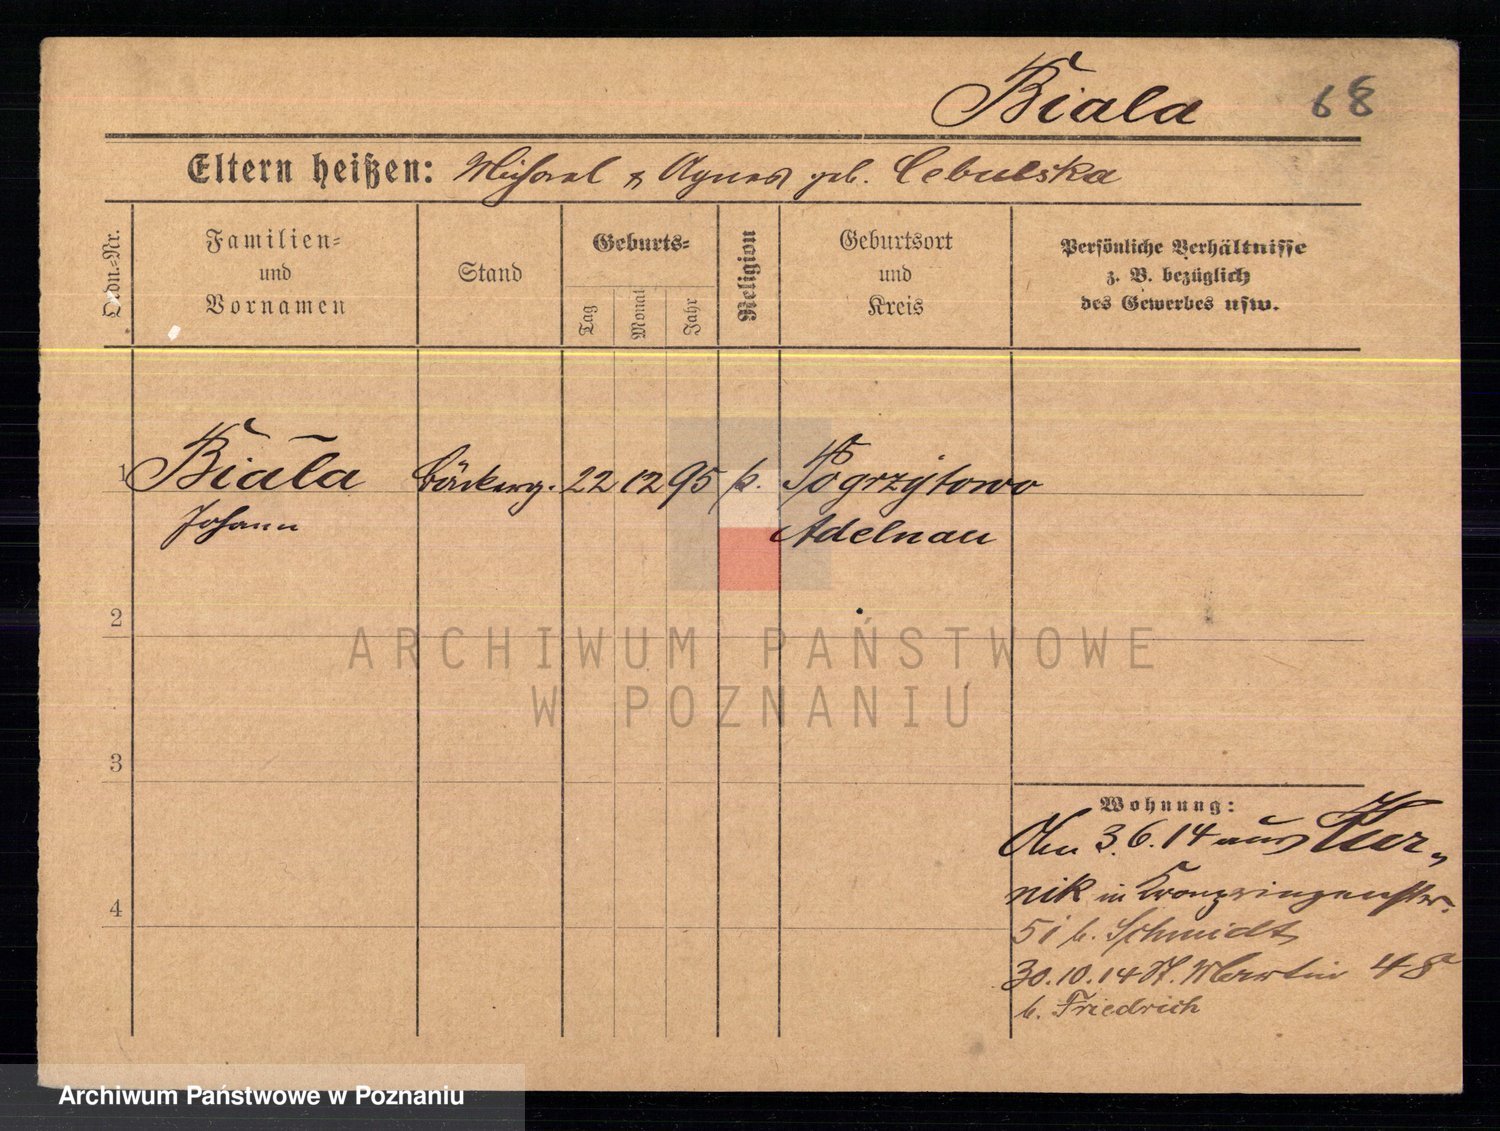 Biala 68
Eltern heißen: Michael & Agnes geb. Cebulska
Ordn.-Nr.
Familien-
und
Vornamen
Stand
Geburts-
Tag
Monat
Jahr
Religion
Geburtsort
und
Kreis
Persönliche Verhältnisse
z. B. bezüglich
des Gewerbes usw.
1 Biała Bäckerg. 22 12 95 k. Pogrzýtowo
Johann Adelnau
2
3
4
Wohnung:
Den 3.6.14 aus Kur-
nik in Kronprinzenstr.
51 b. Schmidt
30.10.14 St. Martin 48
b. Friedrich
ARCHIWUM PAŃSTWOWE
W POZNANIU
Archiwum Państwowe w Poznaniu